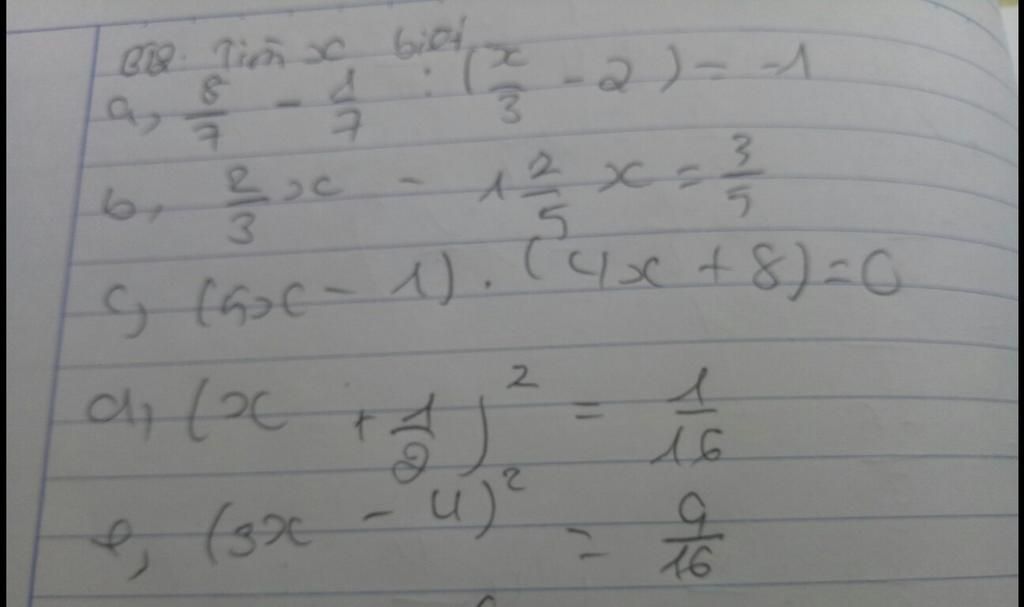 Tìm x biết
a, 8/7 - 1/7 : (x/3 - 2) = -1
b, 2/3 x - 1 2/5 x = 3/5
c, (5x - 1) . (4x + 8) = 0
d, (x + 1/2)² = 1/16
e, (3x - 4)² = 9/16